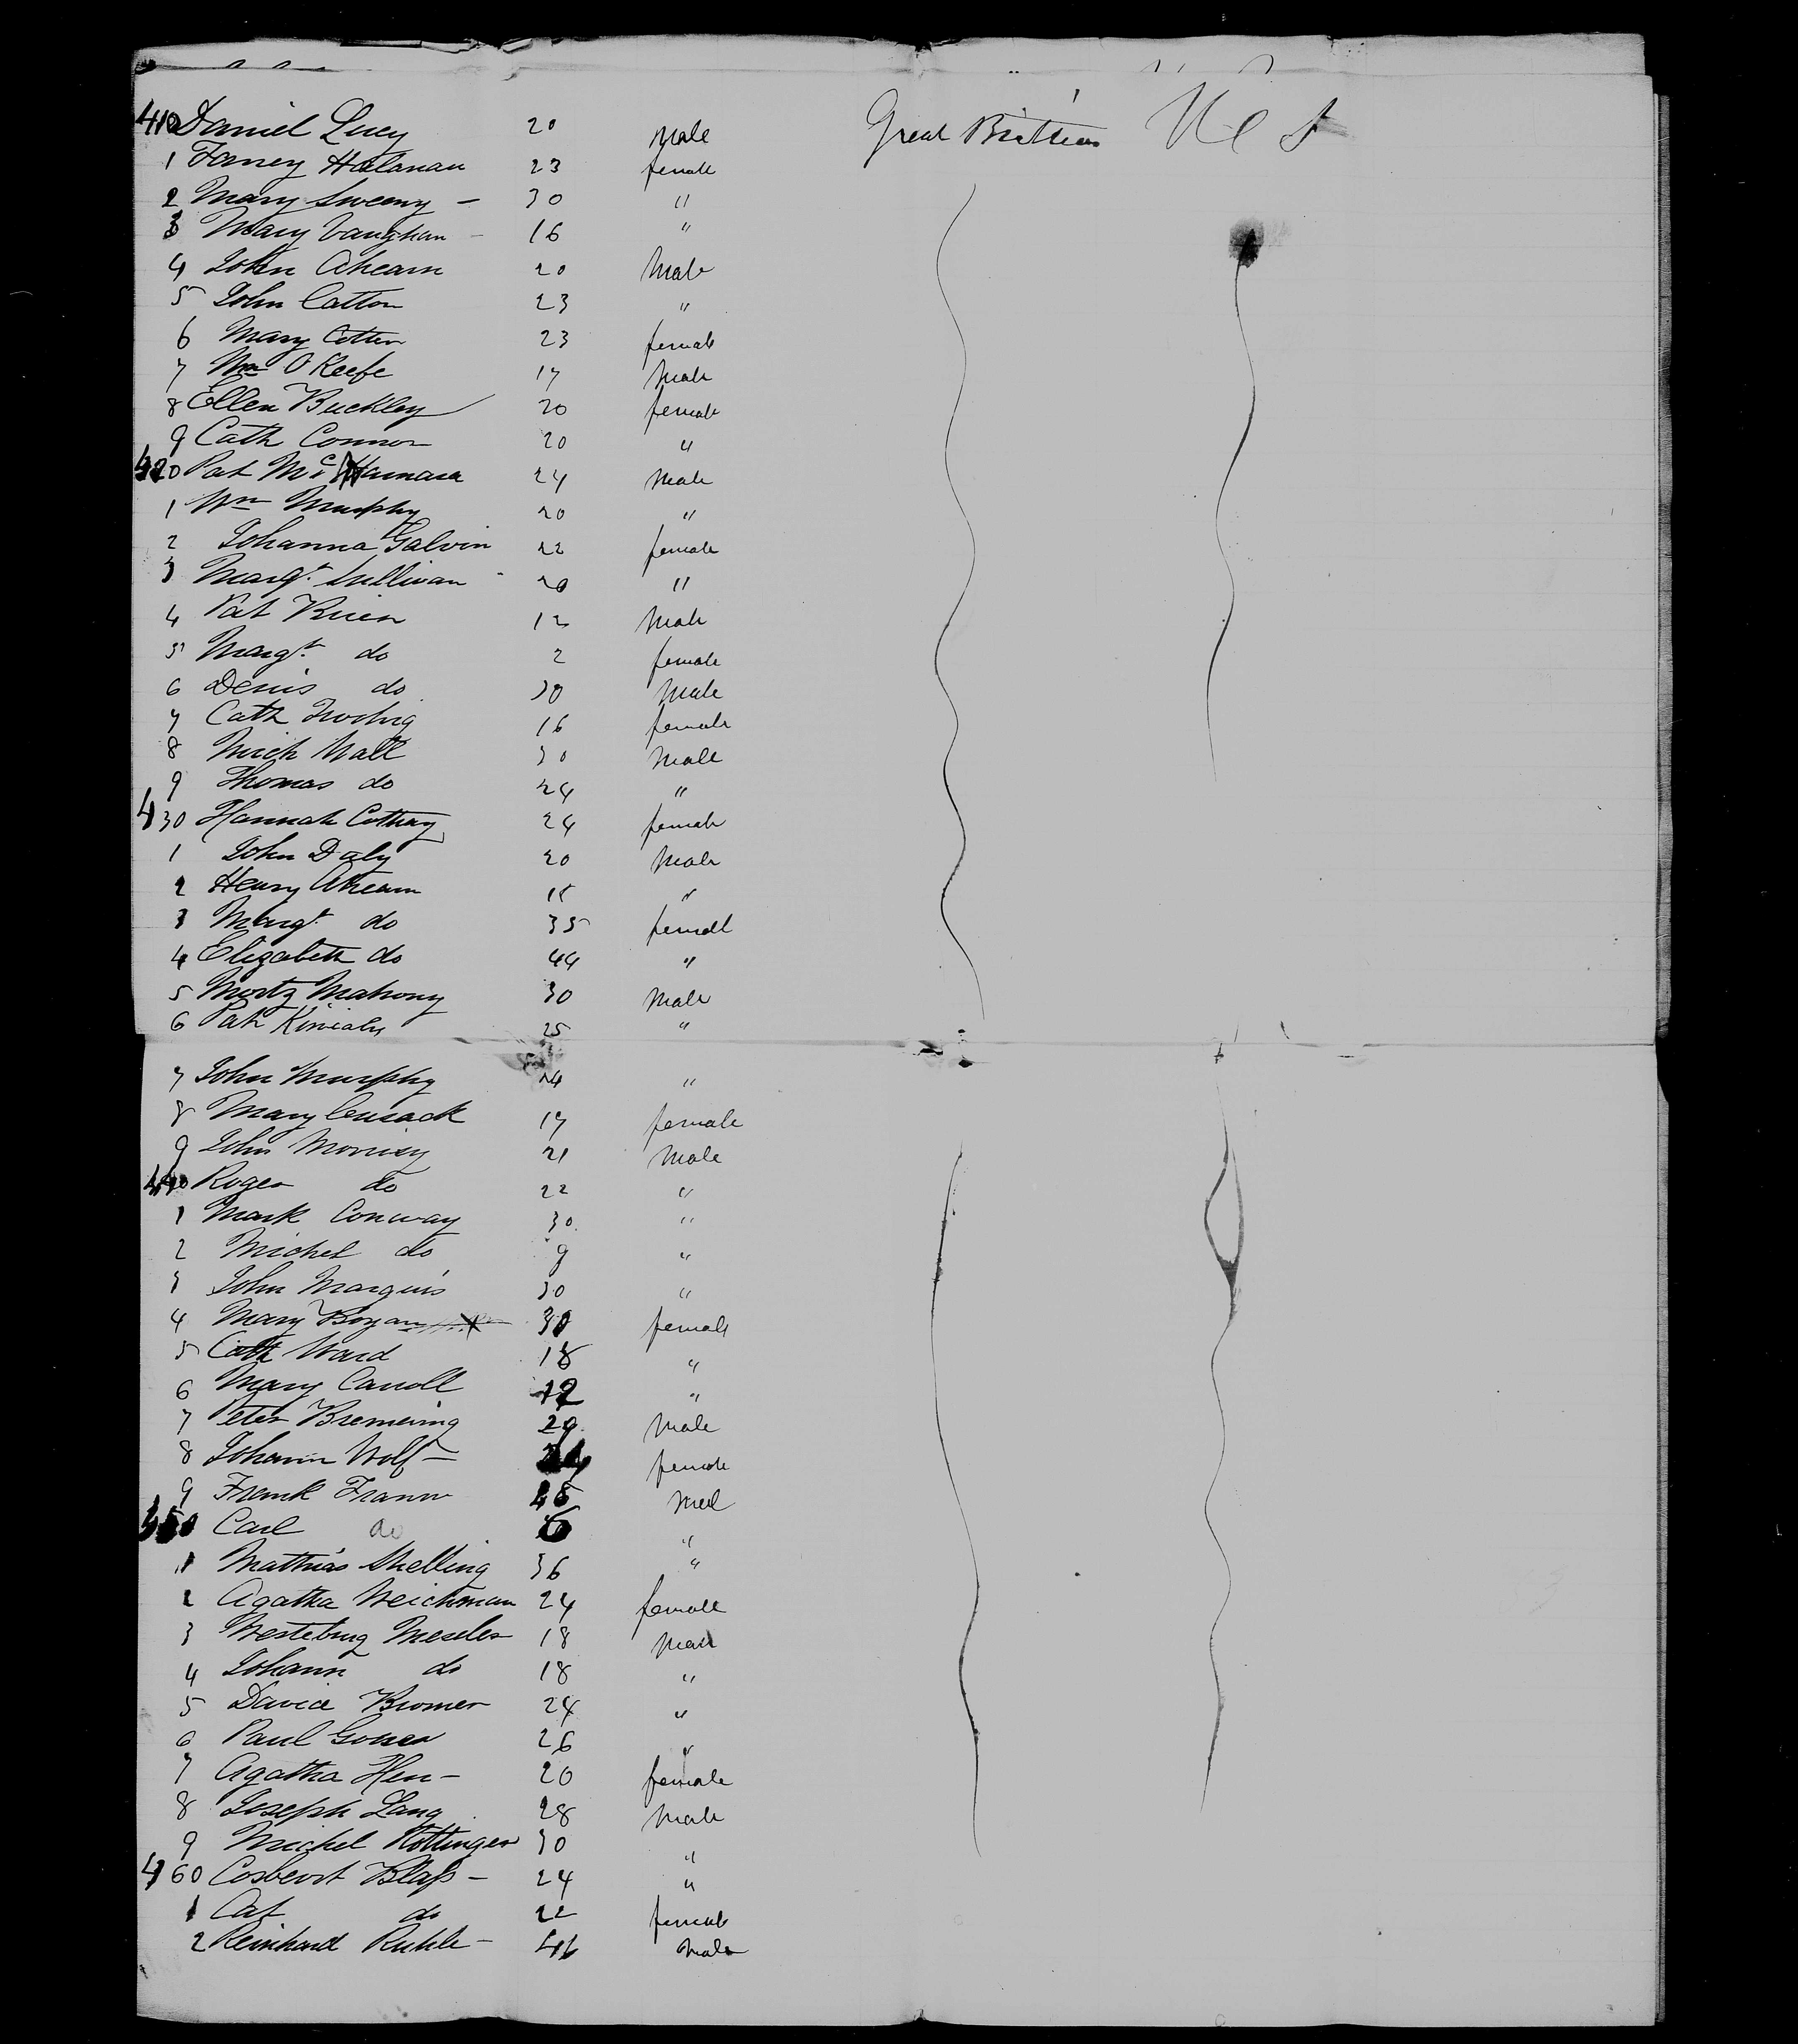 410 Daniel Lucy 20 Male Great Brittian U S
1 Fanney Halanan 23 female
2 Mary Sweeny - 30 "
3 Mary Vaughan - 16 "
4 John Ahearn 20 Male
5 John Cotton 23 "
6 Mary Cotten 23 female
7 Wm O Keefe 17 Male
8 Ellen Buckley 20 female
9 Cath Connor 20 "
420 Pat McNamara 24 Male
1 Wm Murphy 20 "
2 Johanna Galvin 22 female
3 Margt. Sullivan 20 "
4 Pat Brien 12 Male
5 Margt. do 2 female
6 Denis do 30 Male
7 Cath 16 female
8 Mich Wall 30 Male
9 Thomas do 24 "
430 Hannah 24 female
1 John Daly 20 Male
2 Henry Ahearn "
3 Margt. do 35 female
4 Elizabeth do 44 "
5 Morty Mahony 30 Male
6 Pat 25 "
7 John Murphy 24 "
8 Mary Cusack 17 female
9 John Morrisy 21 Male
440 Roger do 22 "
1 Mark Conway 30 "
2 Michel do 9 "
3 John Marquis 30 "
4 Mary Bogan 30 female
5 Cath Ward 18 "
6 Mary Carroll 12 "
7 Peter Bremering 29 Male
8 Johann Wolf - female
9 Frank 45 Mal
450 Carl do 6 "
1 Mathias Shelling 36 "
2 Agatha Weichman 24 female
3 Meseler 18 Male
4 Johann do 18 "
5 David Bromer 24 "
6 Paul 26 "
7 Agatha Hen - 20 female
8 Joseph Lang 28 Male
9 Michel Hottinger 30 "
460 Blass - 24 "
1 Cat do 22 female
2 Reinhard Ruhle - 46 Male